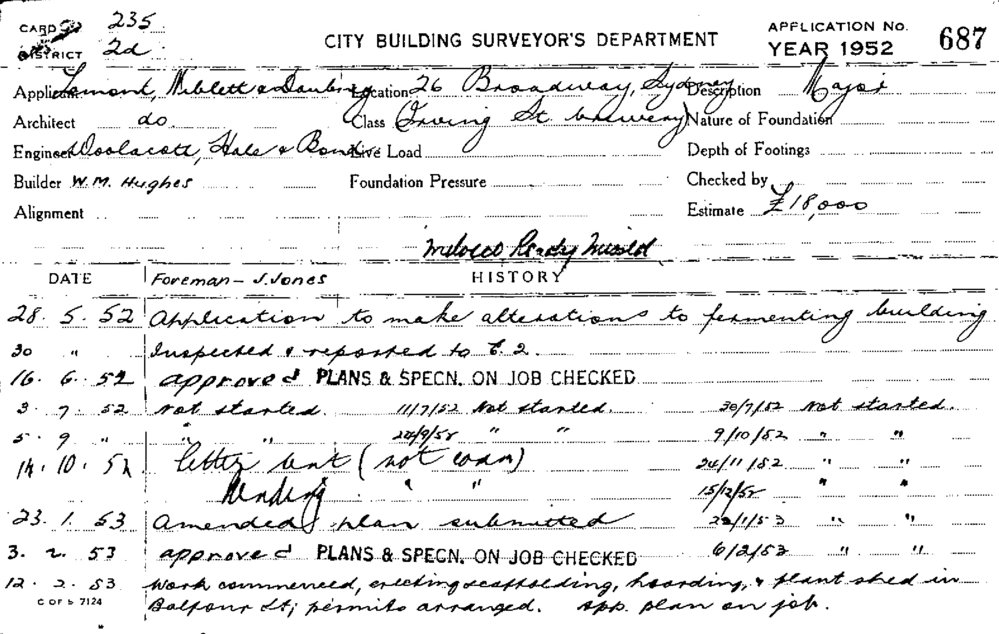 CARD 235
DISTRICT 2d
CITY BUILDING SURVEYOR'S DEPARTMENT
APPLICATION No. 687
YEAR 1952
Applicant Lamont, Niblett & Location 26 Broadway, Sydney Description Major
Architect do. Class (Irving St. brewery) Nature of Foundation
Engineer Woolacott, Hale & Live Load Depth of Footings
Builder W.M. Hughes Foundation Pressure Checked by
Alignment Estimate £18,000
Melocco Ready Mixed
DATE Foreman - J. Jones HISTORY
28. 5. 52 Application to make alterations to fermenting building
30 " Inspected & reported to C.2.
16. 6. 52 approved PLANS & SPECN. ON JOB CHECKED
3. 7. 52 Not started. 11/7/52 Not started. 30/7/52 Not started.
5. 9 " " " 24/9/52 " " 9/10/52 " "
14. 10. 52 letter sent (not com) 24/11/52 " "
Pending " " 15/12/52 " "
23. 1. 53 Amended plan submitted 22/1/53 " "
3. 2. 53 approved PLANS & SPECN. ON JOB CHECKED 6/2/53 " "
12. 2. 53 Work commenced, erecting scaffolding, hoarding, & plant shed in
C OF S 7124 Balfour St; permits arranged. App. plan on job.